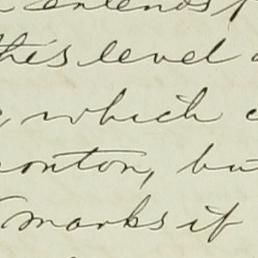 extends
this level
which
onton, bu
marks if